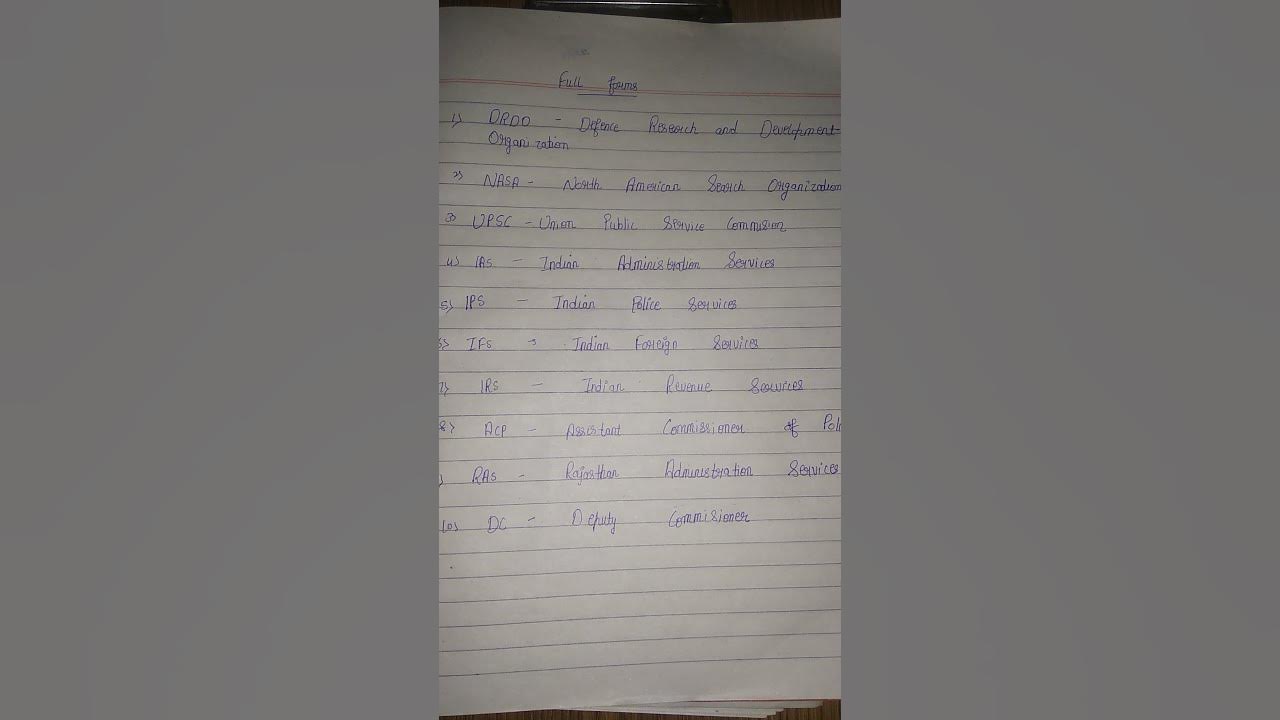 Full forms
1) DRDO - Defence Research and Development
Organization
2) NASA - North American Search Organization
3) UPSC - Union Public Service Commision
4) IAS - Indian Administration Services
5) IPS - Indian Police Services
6) IFS - Indian Foreign Services
7) IRS - Indian Revenue Services
8) ACP - Assistant Commissioner of Poli
) RAS - Rajasthan Administration Services
10) DC - Deputy Commisioner